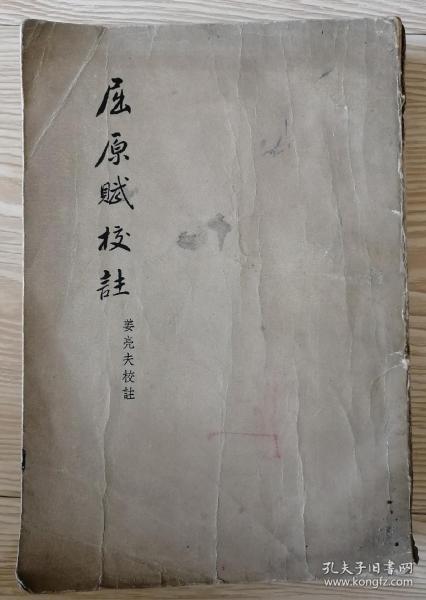 屈原賦校註
姜亮夫校註
孔夫子旧书网
www.kongfz.com